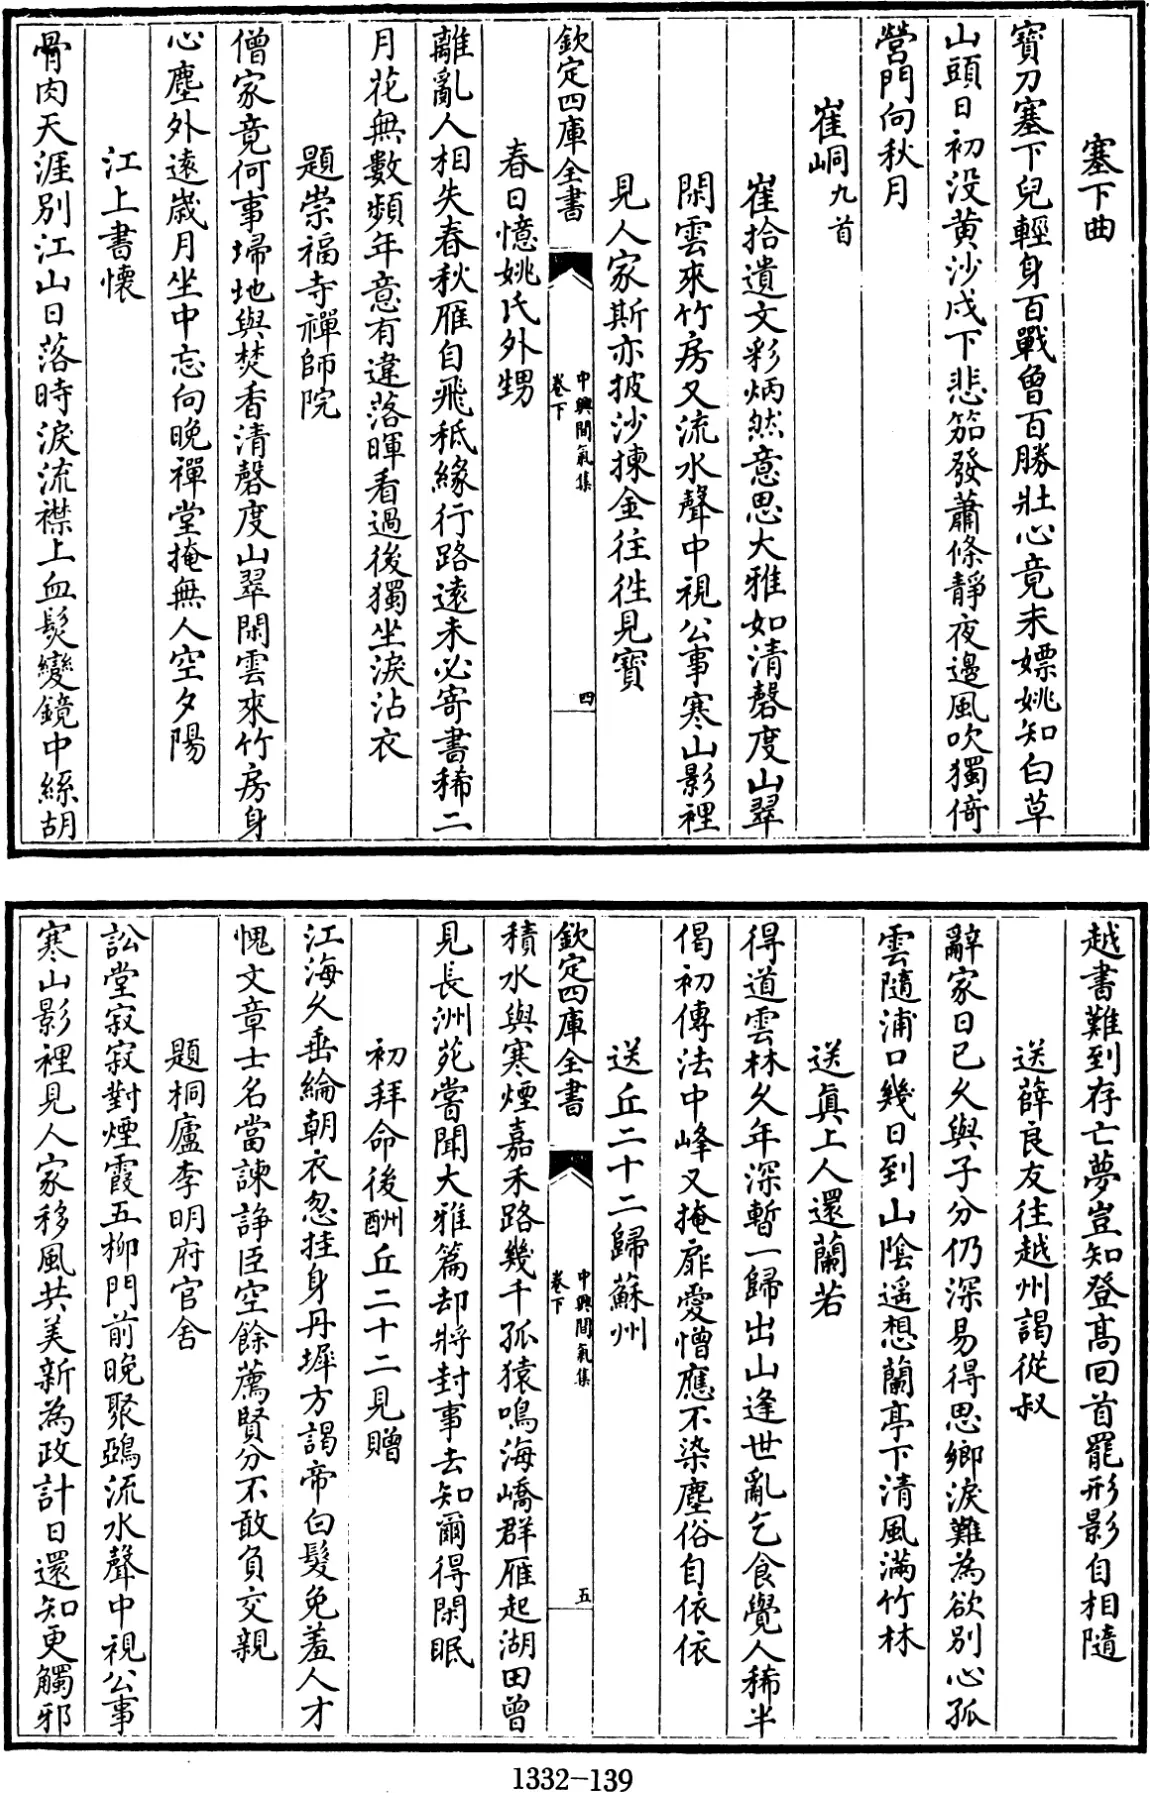 塞下曲
寶刀塞下兒輕身百戰曾百勝壯心竟未嫖姚知白草
山頭日初没黄沙戍下悲笳發蕭條靜夜邊風吹獨倚
營門向秋月
崔峒九首
崔拾遺文彩炳然意思大雅如清磬度山翠
閑雲來竹房又流水聲中視公事寒山影裡
見人家斯亦披沙揀金往徃見寶
欽定四庫全書
中興間氣集
卷下
四
春日憶姚氏外甥
離亂人相失春秋雁自飛秪緣行路遠未必寄書稀二
月花無數頻年意有違落暉看過後獨坐淚沾衣
題崇福寺禪師院
僧家竟何事埽地與焚香清磬度山翠閑雲來竹房身
心塵外遠歲月坐中忘向晚禪堂掩無人空夕陽
江上書懷
骨肉天涯別江山日落時淚流襟上血髮變鏡中絲胡
越書難到存亡夢豈知登髙回首罷形影自相隨
送薛良友往越州謁從叔
辭家日已久與子分仍深易得思鄉淚難為欲別心孤
雲隨浦口幾日到山陰遥想蘭亭下清風滿竹林
送眞上人還蘭若
得道雲林久年深暫一歸出山逢世亂乞食覺人稀半
偈初傳法中峰又掩扉愛憎應不染塵俗自依依
送丘二十二歸蘇州
積水與寒煙嘉禾路幾千孤猿鳴海嶠群雁起湖田曾
欽定四庫全書
中興間氣集
卷下
五
見長洲苑嘗聞大雅篇却將封事去知爾得閑眠
初拜命後酬丘二十二見贈
江海久垂綸朝衣忽挂身丹墀方謁帝白髮免羞人才
愧文章士名當諫諍臣空餘薦賢分不敢負交親
題桐廬李明府官舍
訟堂寂寂對煙霞五柳門前晚聚鴉流水聲中視公事
寒山影裡見人家移風共美新為政計日還知更觸邪
1332-139